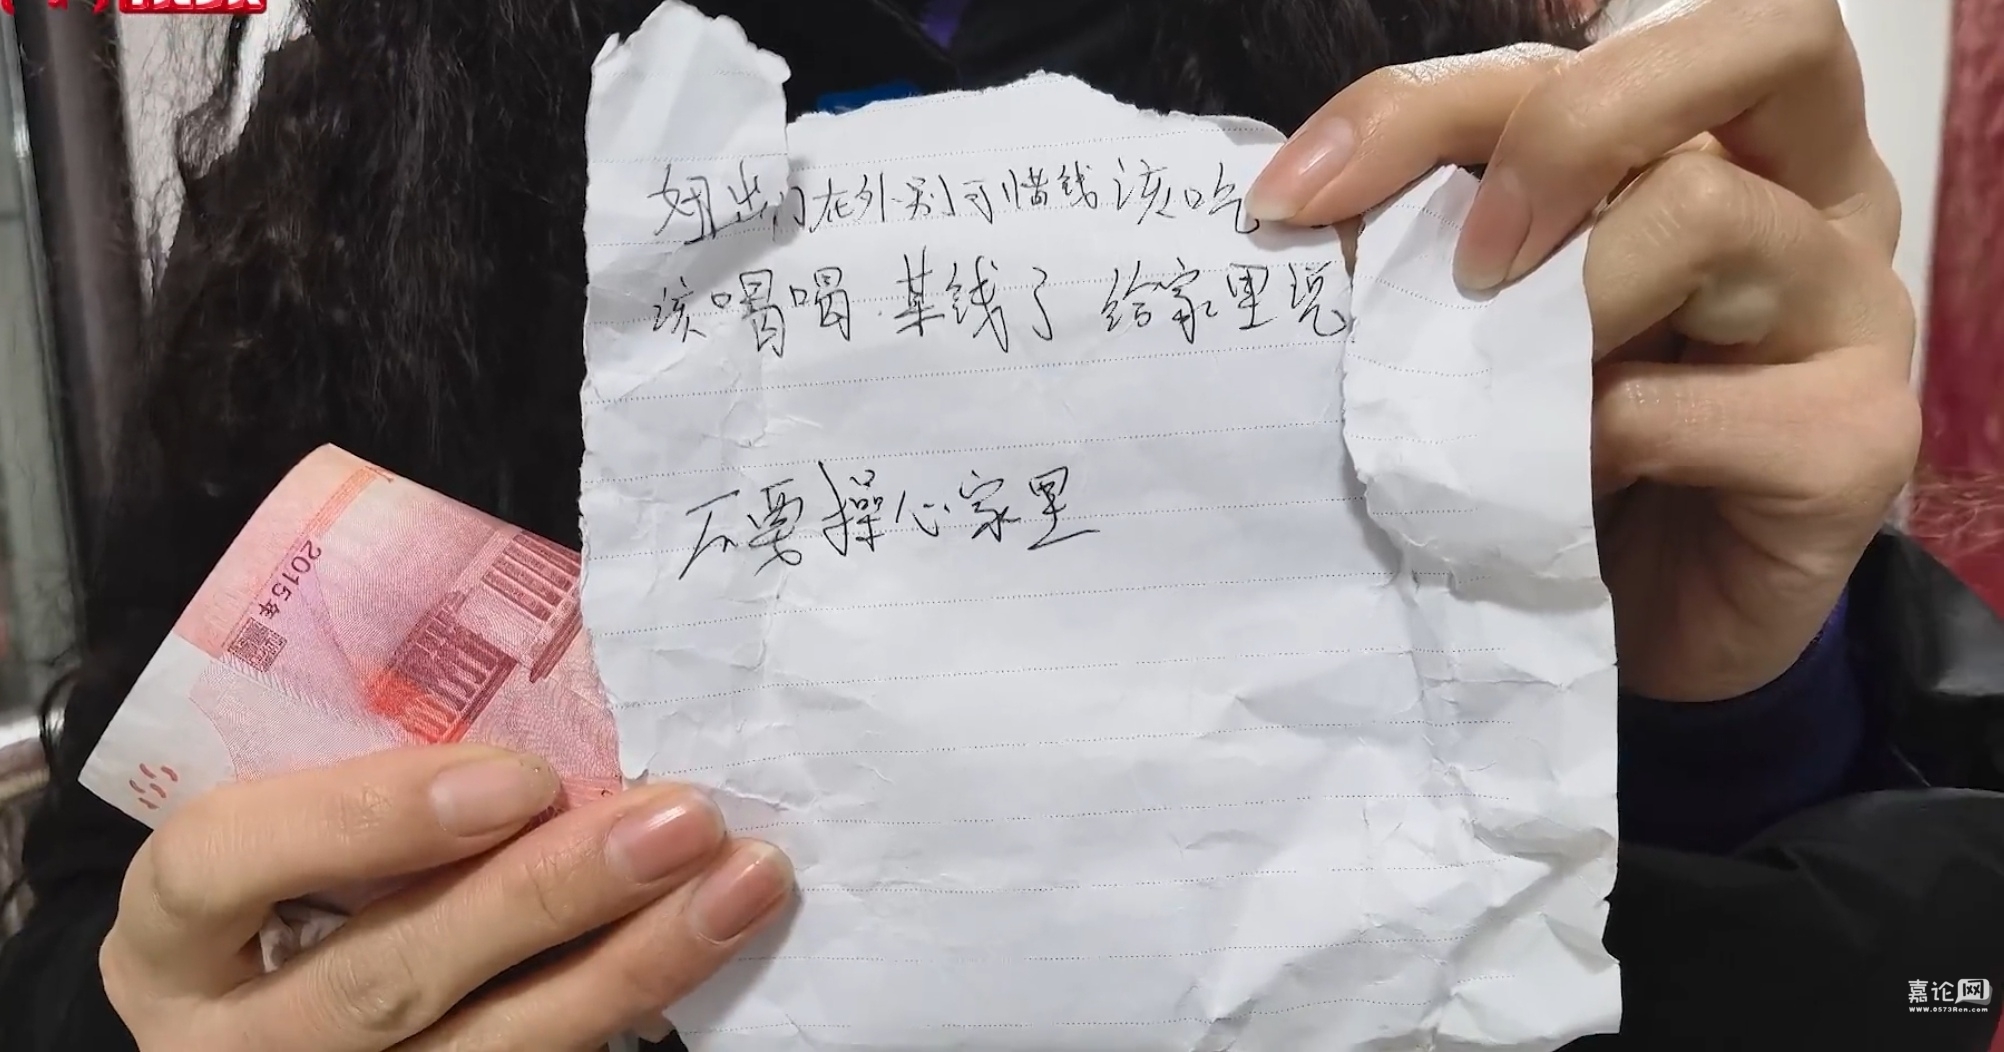 妞出门在外别可惜钱该吃
该喝喝.某钱了 给家里说
不要操心家里
2015年
嘉论网
www.0573Ren.com